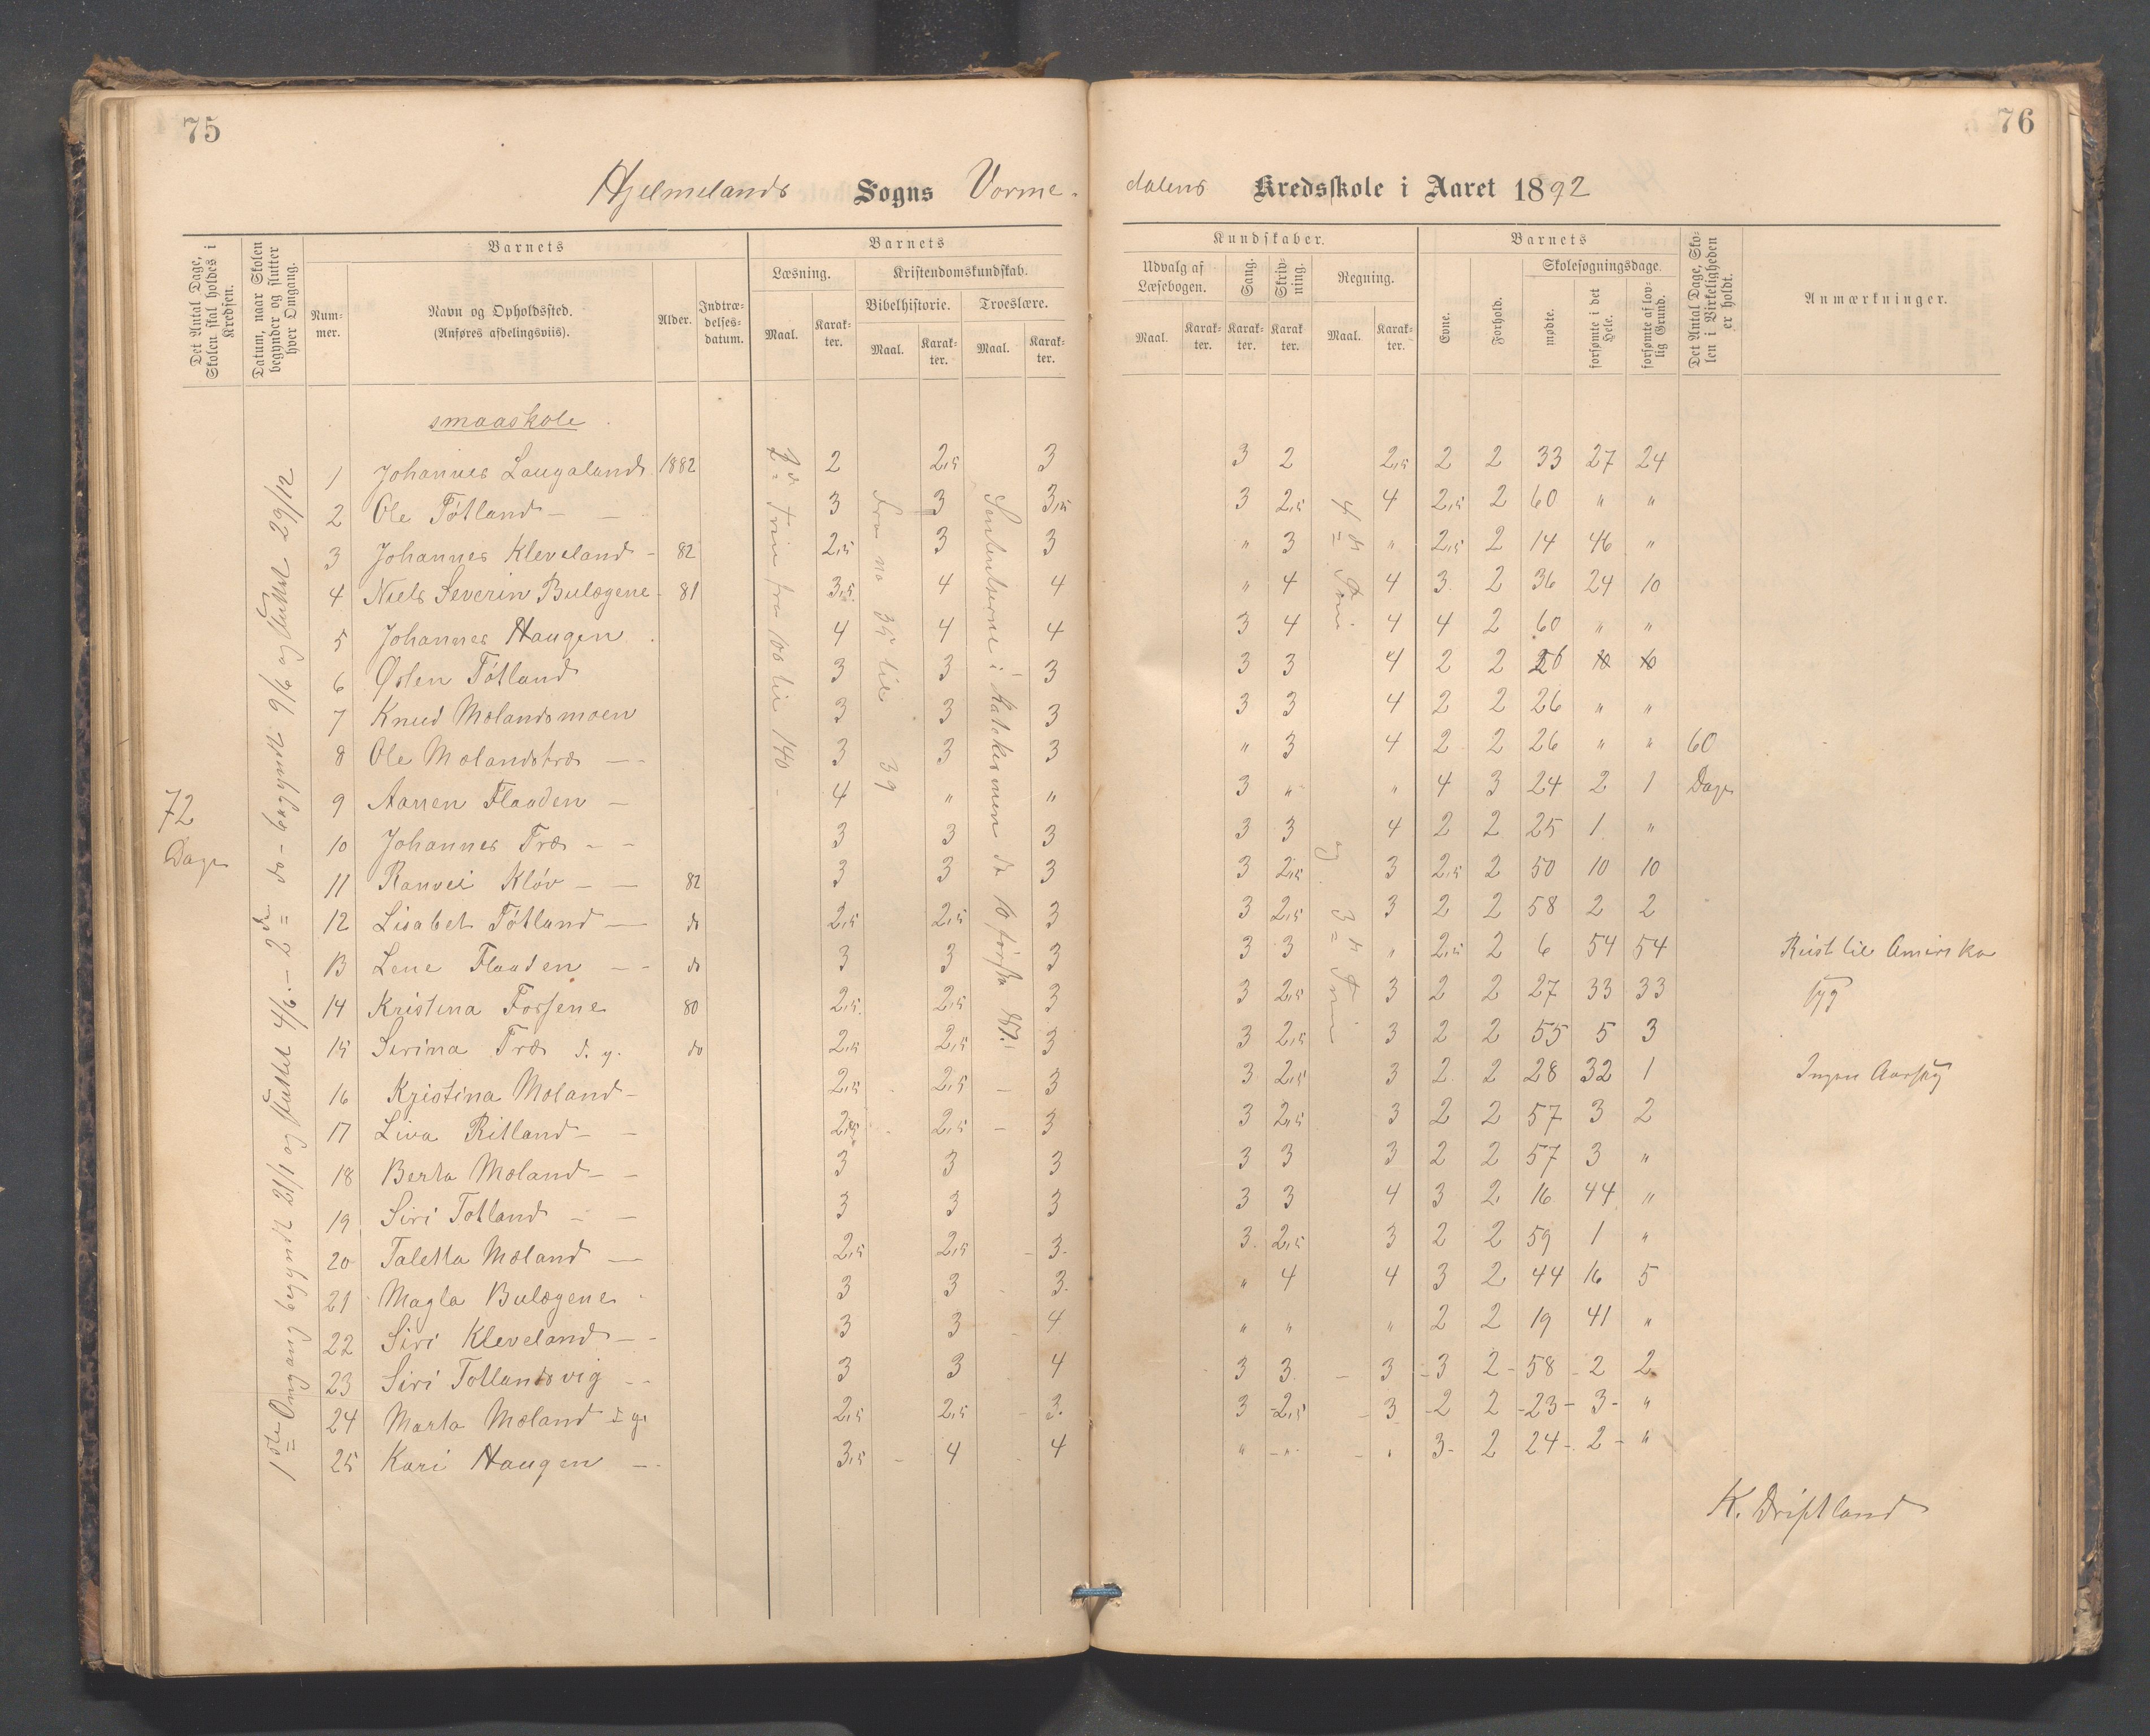 75
76
Hjelmelands Sogns Vorme-
dalens Kredsskole i Aaret 1892
Det Antal Dage, Skolen skal holdes i Kredsen.
Datum, naar Skolen begynder og slutter hver Omgang.
Barnets
Nummer.
Navn og Opholdssted.
(Anføres afdelingsviis).
Alder.
Indtrædelsesdatum.
Barnets
Læsning.
Maal.
Karakter.
Kristendomskundskab.
Bibelhistorie.
Maal.
Karakter.
Troeslære.
Maal.
Karakter.
Kundskaber.
Udvalg af Læsebogen.
Maal.
Karakter.
Sang.
Karakter.
Skrivning.
Karakter.
Regning.
Maal.
Karakter.
Barnets
Evne.
Forhold.
Skolesøgningsdage.
mødte.
forsømte i det Hele.
forsømte af lovlig Grund.
Det Antal Dage, Skolen i Virkeligheden er holdt.
Anmærkninger.
72 Dage
1ste Omgang begyndt 21/1 og sluttet 4/6. – 2den do – begyndt 9/6 og sluttet 29/12
smaaskole
fra no 35 til 39
Sententserne i Katekismen de 10 første
4de Trin og 3de Trin
60 Dage
1 Johannes Laugaland 1882 2 2,5 3 3 2 2,5 2 2 33 27 24
2 Ole Tøtland – – 3 3 3,5 3 2,5 4 2,5 2 60 " "
3 Johannes Kleveland – 82 2,5 3 3 " 3 " 2,5 2 14 46 "
4 Niels Severin Bulægene – 81 3,5 4 4 " 4 4 3 2 36 24 10
5 Johannes Haugen 4 4 4 3 4 4 4 2 60 " "
6 Østen Tøtland 3 3 3 3 3 4 2 2 26
7 Knud Mølandsmoen 3 3 3 3 3 4 2 2 26 " "
8 Ole Mølandstræ – 3 3 3 " 3 4 2 2 26 " "
9 Aanen Flaaden – 4 " " 3 " " 4 3 24 2 1
10 Johannes Træ – – 3 3 3 3 3 4 2 2 25 1 "
11 Ranvei Kløv – – 82 3 3 3 3 2,5 3 2,5 2 50 10 10
12 Lisabet Tøtland – do 2,5 2,5 3 3 2,5 3 2 2 58 2 2
13 Lene Flaaden – – do 3 3 3 3 3 " 2,5 2 6 54 54 Reist til Amerika
14 Kristina Fossene 80 2,5 2,5 3 3 2,5 3 2 2 27 33 33 Syg
15 Serina Træ d. y. do 2,5 2,5 3 3 2,5 3 2 2 55 5 3
16 Kristina Moland – 2,5 2,5 – 3 3 2,5 3 2 2 28 32 1 Ingen Aarsag
17 Liva Ritland – – 2,5 2,5 – 3 3 2,5 3 2 2 57 3 2
18 Berta Mæland – – 3 3 3 3 3 3 2 2 57 3 "
19 Siri Totland – – 3 3 3 3 3 4 3 2 16 44 "
20 Taletta Mæland – 2,5 2,5 3 3 2,5 3 2 2 59 1 "
21 Magla Bulægene 3 3 3 " 4 4 3 2 44 16 5
22 Siri Kleveland – 3 3 4 " " " 2 2 19 41 "
23 Siri Totlandsvig – – 3 3 4 3 3 – 3 – 3 2 – 58 – 2 2
24 Marta Mæland d. y. 2,5 2,5 3 3 – 2,5 – 3 – 2 2 – 23 – 3 – "
25 Kari Haugen – 3,5 – 4 4 " – " – " 3 – 2 24 – 2 – "
K. Driftland